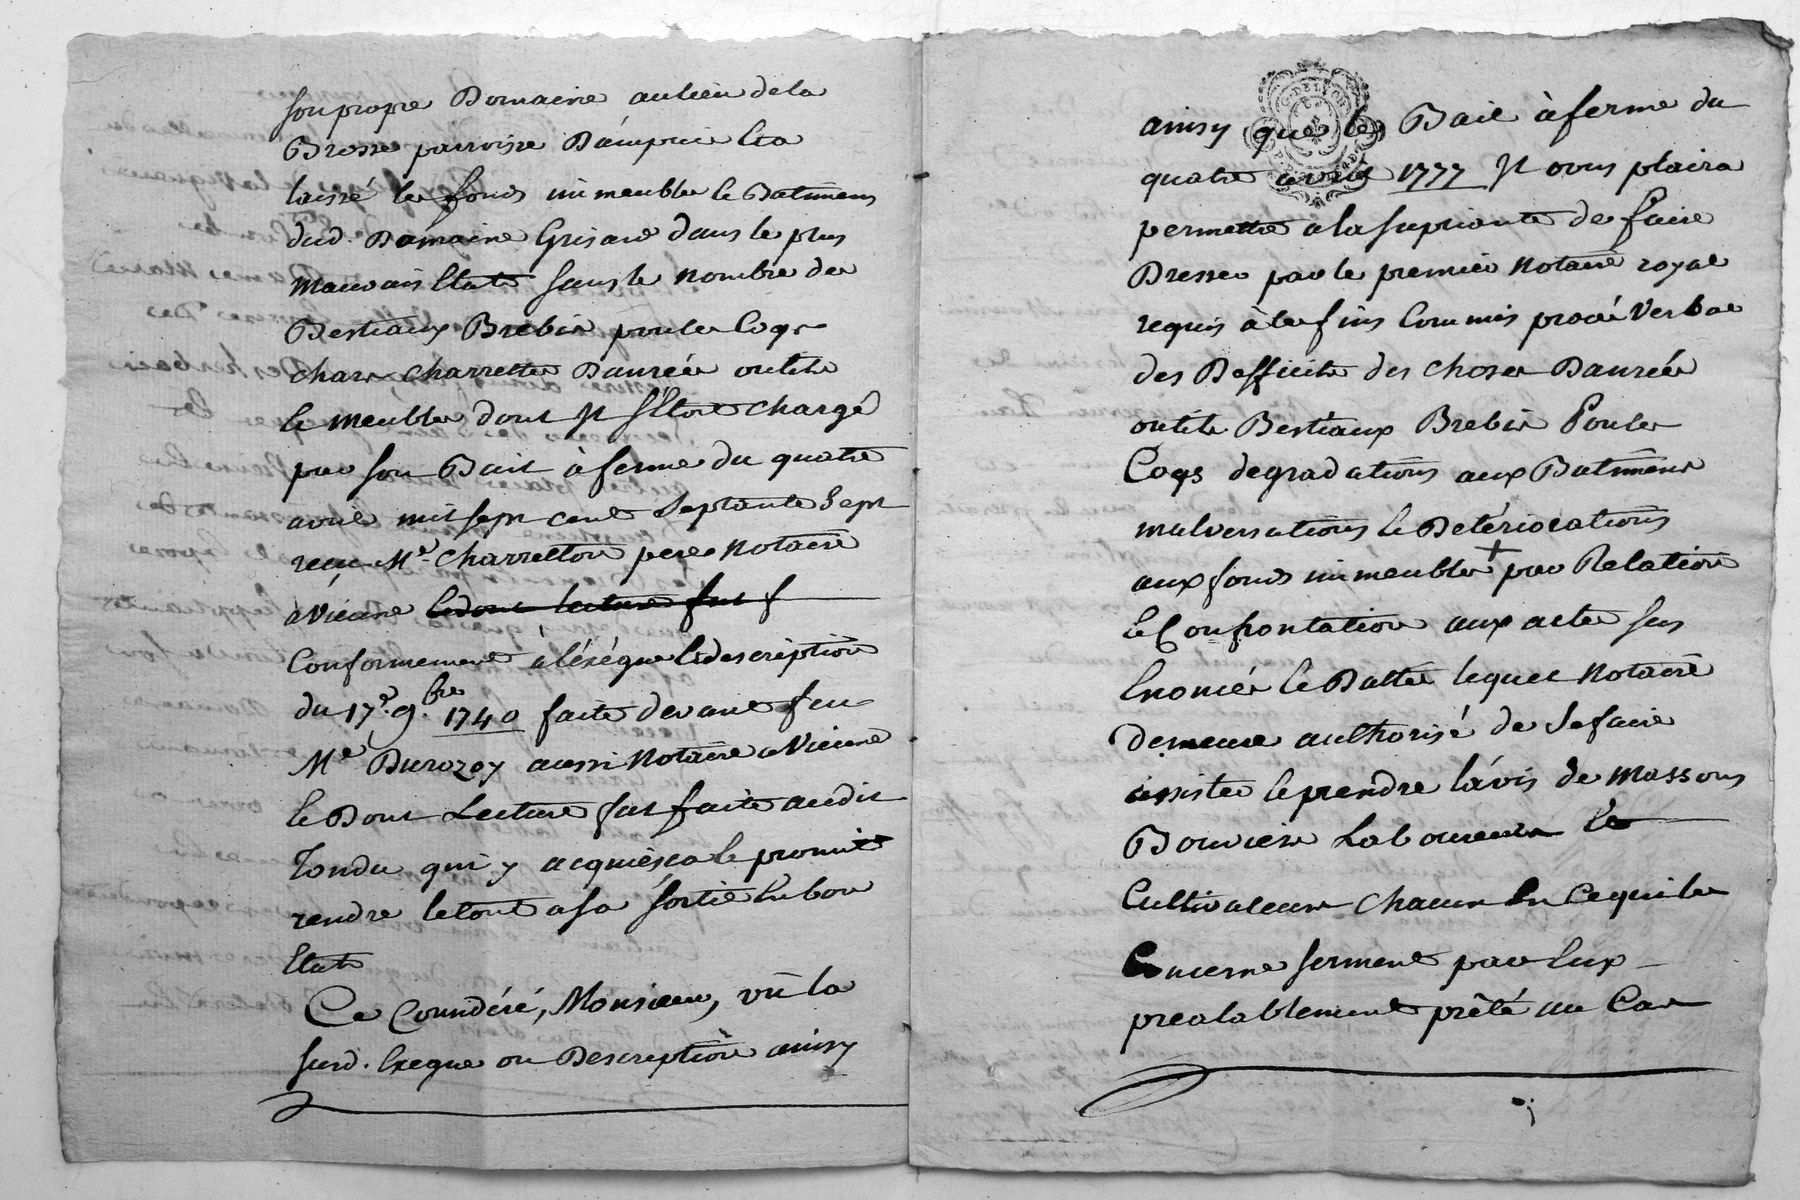 son propre Domaine au lieu de la
Bresse parroisse Dampuis Et a
laissé les fonds immeubles Et Batimens
dud. Domaine Grisard dans le plus
mauvais Etat sans le nombre de
Bestiaux Brebis poules Coqs
chars charrettes Danrées outils
Et meubles dont Il s'Etoit chargé
par son Bail à ferme du quatre
avril mil sept cent Septante Sept
recu Me. Charreton pere Notaire
à Vienne Et dont lecture fut f
Conformement à l'éxégue Et description
du 17e. 9bre. 1740 faite devant feu
Me Durozoy aussi Notaire a Vienne
Et Dont Lecture fut faite audit
Tondu qui y acquiésca Et promit
rendre le tout a sa sortie En bon
Etat
Ce Considéré, Monsieur, vû la
susd. Exegue ou Description ainsy
C. DE LYON
ainsy que le Bail à ferme du
quatre avril 1777 Il vous plaira
permettre a la supliante de faire
Dresser par le premier Notaire royal
requis à les fins Commis procé Verbal
des Defficits des choses Danrées
outils Bestiaux Brebis Poules
Coqs degradations aux Batimens
malversations Et Detériorations
aux fonds immeubles + par Relation
Et Confrontation aux actes sus
Enoncés Et Dattés lequel Notaire
demeure authorisé de Se faire
assister Et prendre l'avis de Massons
Bouviers Laboureurs Et
Cultivateurs Chacun En Ce qui les
Concerne serment par Eux
prealablement prêté au Cas